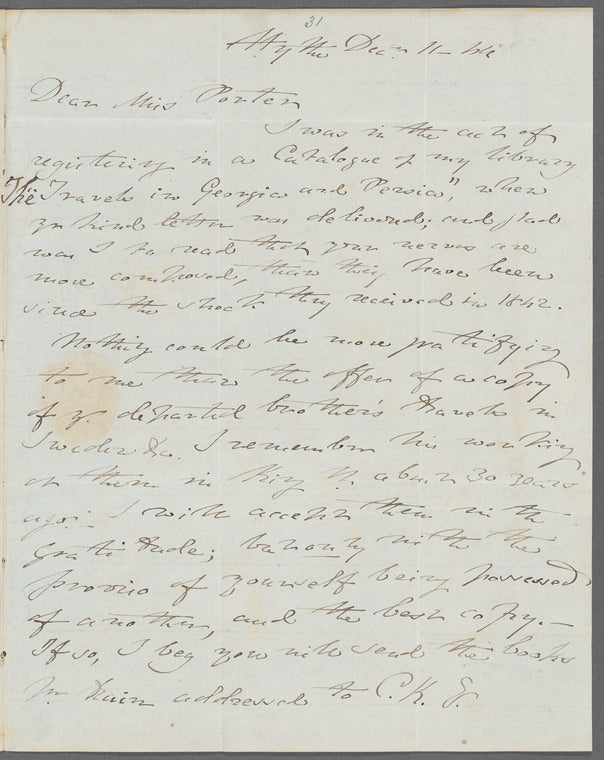 31
Hythe Decr. 11 - 44
Dear Miss Porter
I was in the act of
registering in a Catalogue of my library
"The Travels in Georgia and Persia", when
yr kind letter was delivered; and glad
was I to read that your nerves are
more composed, than they have been
since the shock they received in 1842.
Nothing could be more gratifying
to me than the offer of a copy
of yr. departed brother's Travels in
Sweden &c. I remember his working
at them in King St. about 30 years
ago:- I will accept them with
Gratitude; but only with the
proviso of yourself being possessed
of another, and the best copy.-
If so, I beg you will send the books
pr train addressed to C. K.